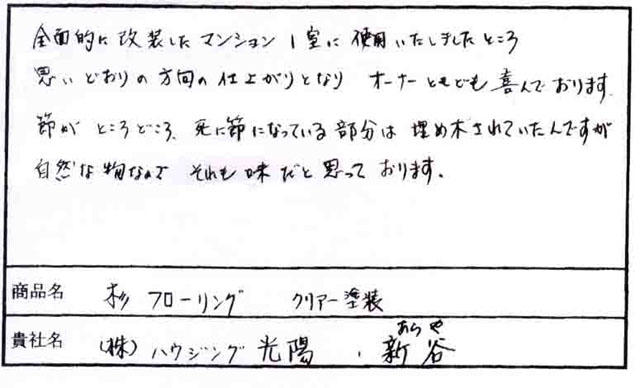 全面的に改装したマンション1室に使用いたしましたところ
思いどおりの方向の仕上がりとなり オーナーともども喜んでおります。
節が ところどころ、死に節になっている部分は 埋め木されていたんですが
自然な物なので それも味だと思って おります。
商品名 杉 フローリング クリアー塗装
あらや
貴社名 (株)ハウジング光陽 、新谷